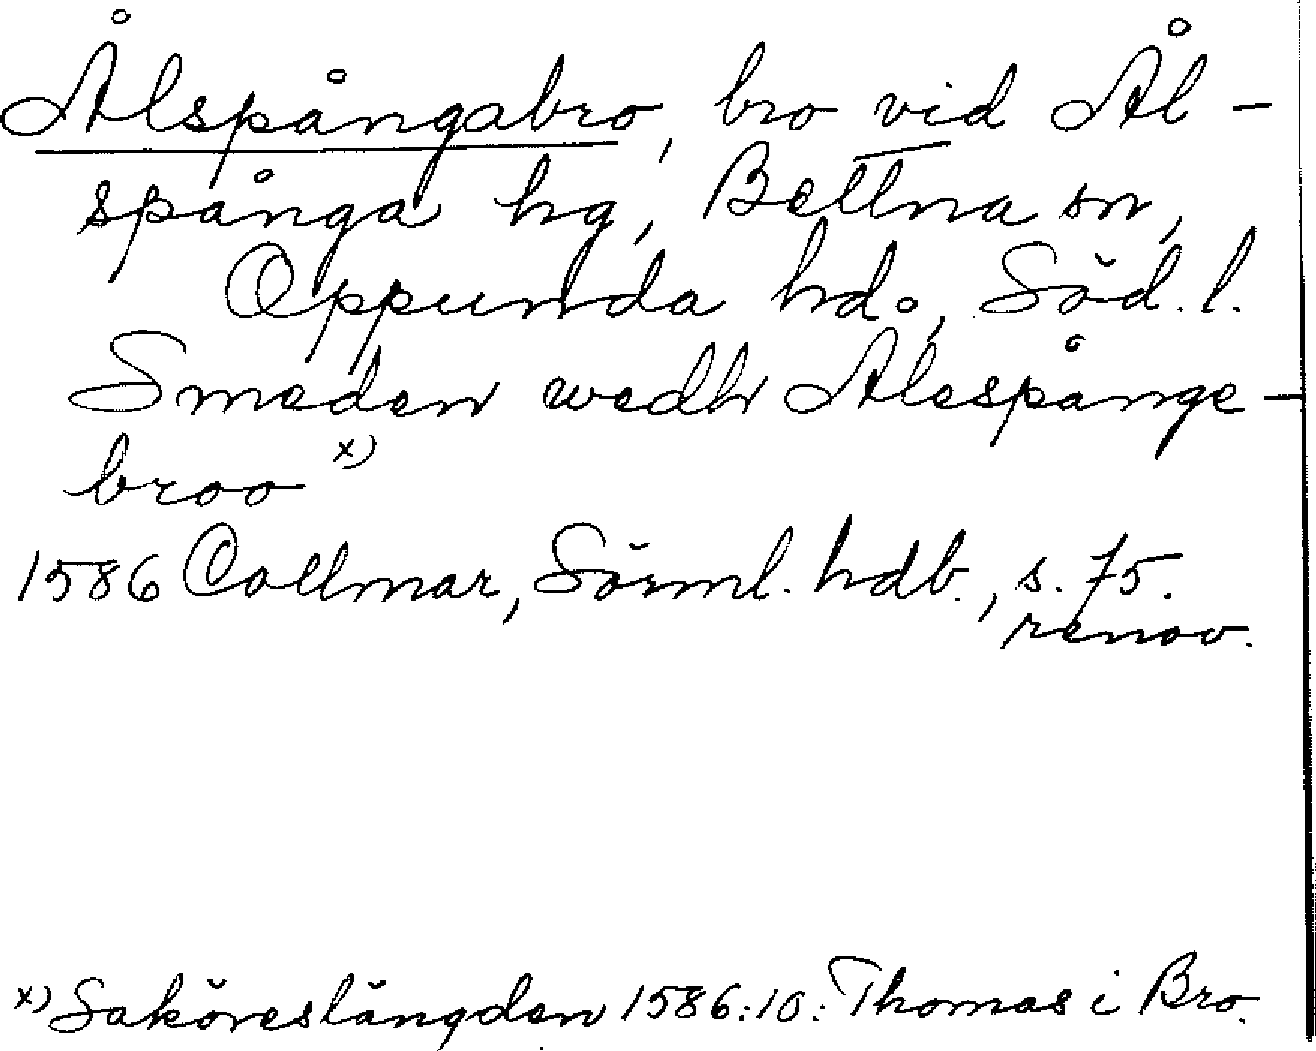 Ålspångabro, bro vid Ål-
spånga hg, Bettna sn,
Oppunda hd., Söd. l.
Smeden wedh Ålespånge-
broo x)
1586 Collmar, Sörml. hdb., s. 75.
renov.
x) Saköreslängden 1586:10: Thomas i Bro.